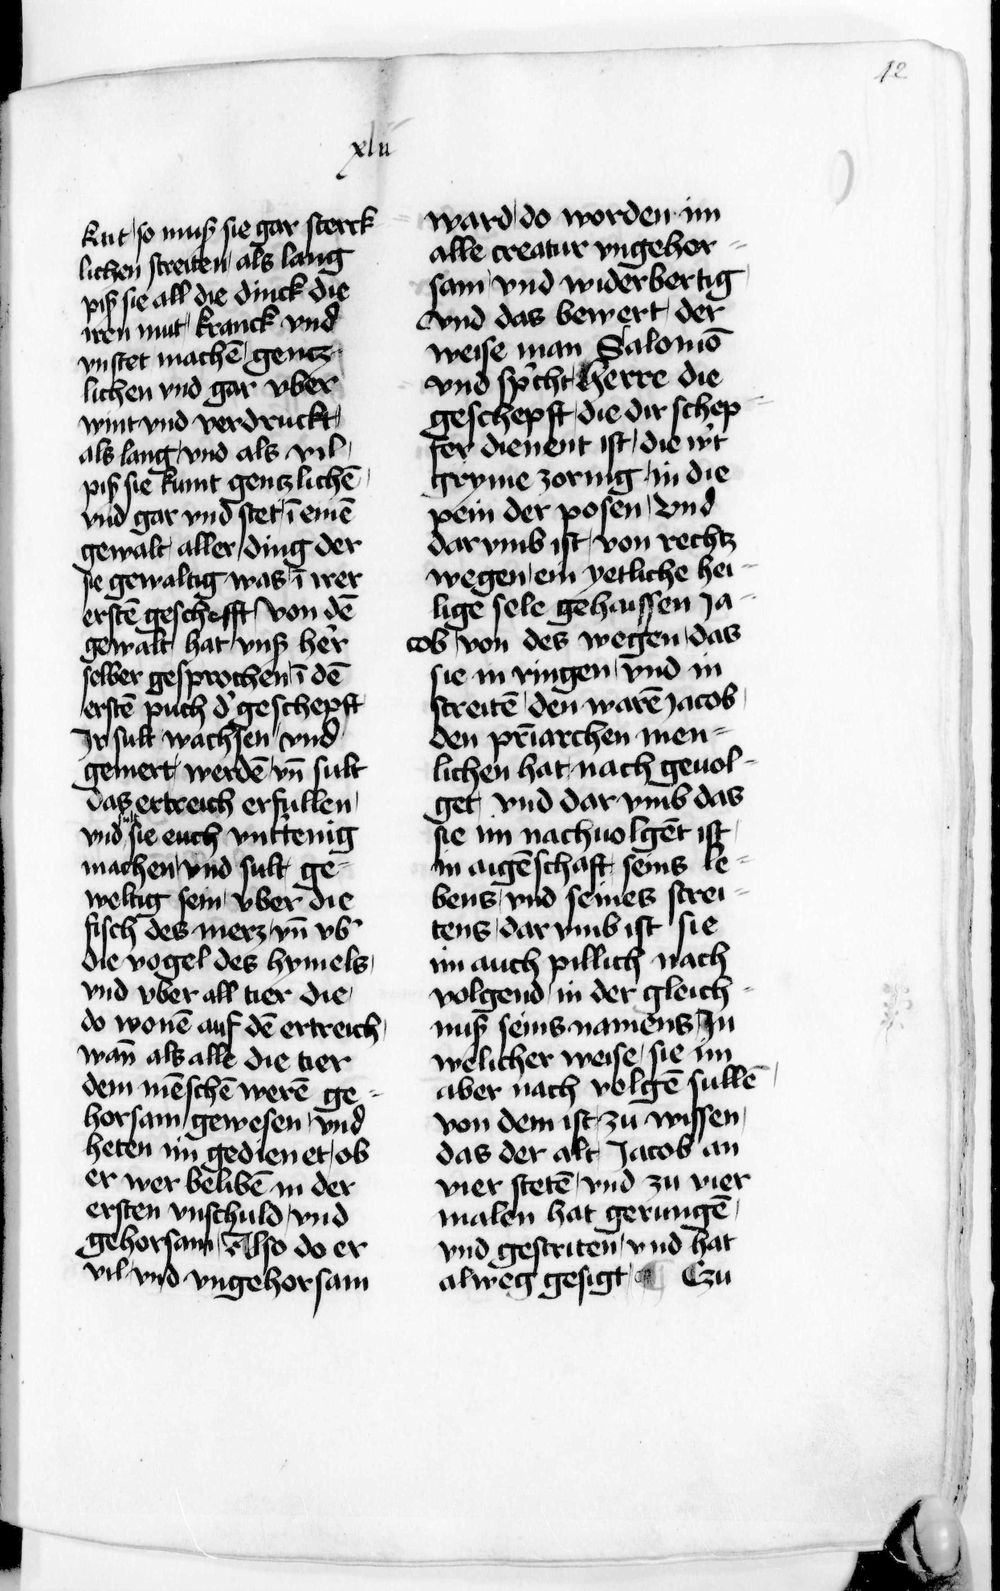 42
xlii
kait / so muß sie gar sterck
lichen streiten / als lang
piß sie all die dinck die
iren mut / kranck vnd
vnstet machē / gentz
lichen vnd gar vber
wint vnd verdruckt /
als lang / vnd als vil /
piß sie kumt gentzlichē /
vnd gar vnd stet / ī einē
gewalt / aller / ding der
sie gewaltig was / ī irer
erstē geschefft / von dē
gewalt hat vnß he'r
selber gesprochen / ī dē
erstē puch d' geschepft
Ir sult wachsen / vnd
gemert / werdē / vn̄ sult
das ertreich erfullen /
vnd sult sie euch vnt'tenig
machen / vnd sult ge=
weltig sein / vber die
fisch des merz / vn̄ vb'
die vogel des hymels /
vnd vber all tier die /
do wonē auf dē ertreich /
wan̄ als alle die tier
dem mēschē werē ge=
horsam / gewesen / vnd
heten im gedienet / ob
er wer belibē in der
ersten vnschuld / vnd
gehorsam / Also do er
vil / vnd vngehorsam
ward / do worden im
alle creatur vngehor=
sam / vnd widerbertig
vnd das bewert / der
weise man Salomō
vnd sp'cht / Herre die
geschepft / die dir schep=
fer dienent ist / die w't
gryme zornig / in die
pein der posen / Vnd
dar vmb ist / von rechtz
wegen / ein yetliche hei=
lige sele gehaissen Ja=
cob / von des wegen / das
sie in ringen / vnd in
streitē / den warē Jacob /
den pr̄iarchen men=
lichen hat / nach geuol=
get / vnd dar vmb das
sie im nachuolgēt ist /
in aigēschaft seins le=
bens / vnd seines strei=
tens / dar vmb ist sie
im auch pillich nach
volgend / in der gleich=
nuß seins namens / In
welicher weise / sie im
aber nach volgē sullē /
von dem ist / zu wissen /
das der alt / Jacob an
vier stetē / vnd zu vier
malen hat gerungē /
vnd gestriten / vnd hat
alweg gesigt / Czu